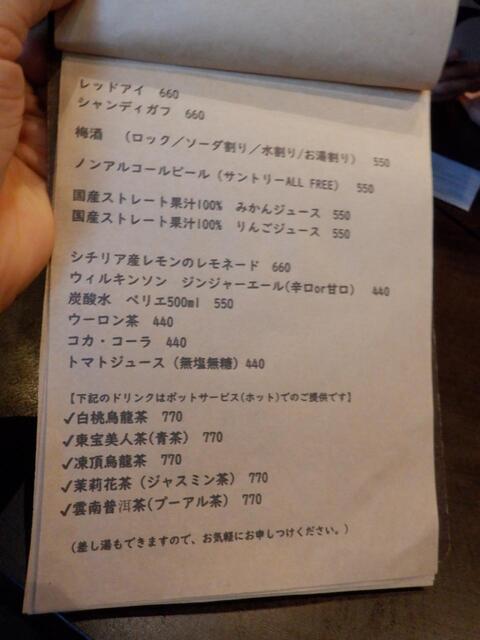 レッドアイ 660
シャンディガフ 660
梅酒 (ロック/ソーダ割り/水割り/お湯割り) 550
ノンアルコールビール(サントリーALL FREE) 550
国産ストレート果汁100% みかんジュース 550
国産ストレート果汁100% りんごジュース 550
シチリア産レモンのレモネード 660
ウィルキンソン ジンジャーエール(辛口or甘口) 440
炭酸水 ペリエ500ml 550
ウーロン茶 440
コカ・コーラ 440
トマトジュース(無塩無糖)440
【下記のドリンクはポットサービス(ホット)でのご提供です】
✓白桃烏龍茶 770
✓東宝美人茶(青茶) 770
✓凍頂烏龍茶 770
✓茉莉花茶(ジャスミン茶) 770
✓雲南普洱茶(プーアル茶) 770
(差し湯もできますので、お気軽にお申しつけください。)